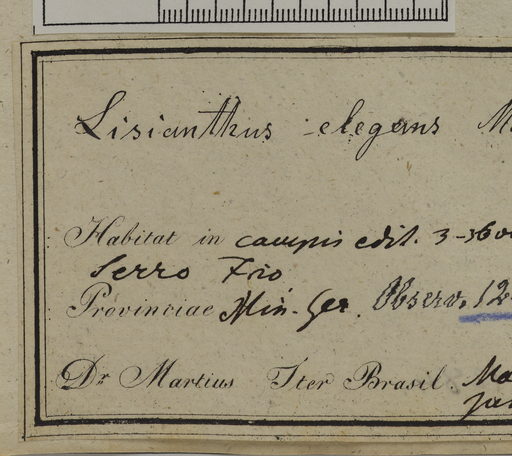 Lisianthus elegans M
Habitat in campis edit. 3-36
Serro Frio
Provinciae Min. Ger. Observ. 12
Dr Martius Iter Brasil. Ma